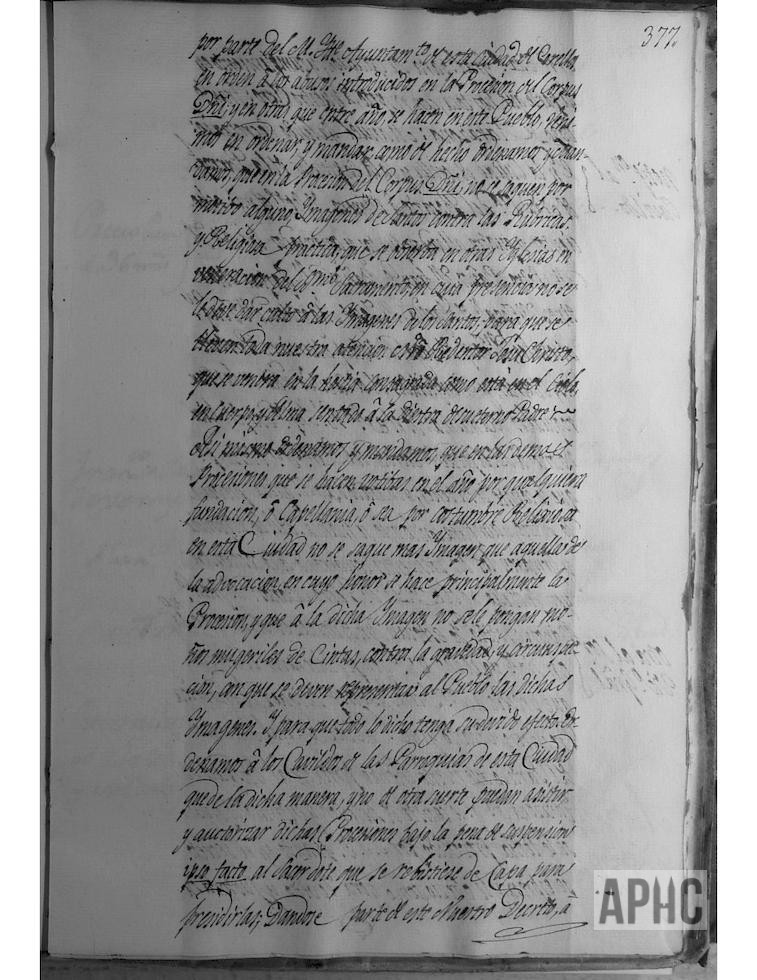 377.
por parte del M. Ilte. Ayuntamto. de esta Ciudad de Corella,
en orden â los abusos introducidos en la Procesion del Corpus
Dñi, y en otras, que entre año se hacen en este Pueblo, veni-
mos en ordenar y mandar, como de hecho ordenamos, y man-
damos, que en la Procesion del Corpus Dñi, no se saquen por
motivo alguno, Imagenes de Santos contra las Rubricas,
y Religiosa practica, que se observa en otras Yglesias en
veneracion del SSmo. Sacramento, en cuia presencia no se
le debe dar culto â las Imagenes de los Santos, para que se
lleven toda nuestra atencion â Redentor Jesu Christo,
que se venera en la hostia consagrada como está en el Cielo,
en Cuerpo, y Alma sentado â la diestra de su eterno Padre
Assi mismo ordenamos y mandamos, que en las demas
Procesiones, que se hacen votivas en el año por qualquiera
fundacion, ô Capellania, ô sea por costumbre Religiosa
en esta Ciudad no se saque mas Ymagen, que aquella de
la advocacion, en cuyo honor se hace principalmente la
Procesion, y que â la dicha Ymagen no se le pongan mo-
ños mugeriles de Cintas, contra la gravedad, y circunspe-
cion, con que se deven representar al Pueblo las dichas
Ymagenes. Y para que todo lo dicho tenga su devido efecto. Or-
denamos â los Cavildos de las Parroquias de esta Ciudad
que de la dicha manera, y no de otra suerte puedan asistir
y auctorizar dichas Procesiones bajo la pena de suspension
ipso facto al Sacerdote que se rebistiere de Capa para
presidirlas; Dandose parte de este Nuestro Decreto, â
APHC